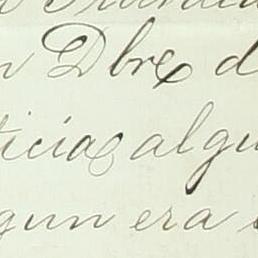 Dbre d
ticias algu
gun era